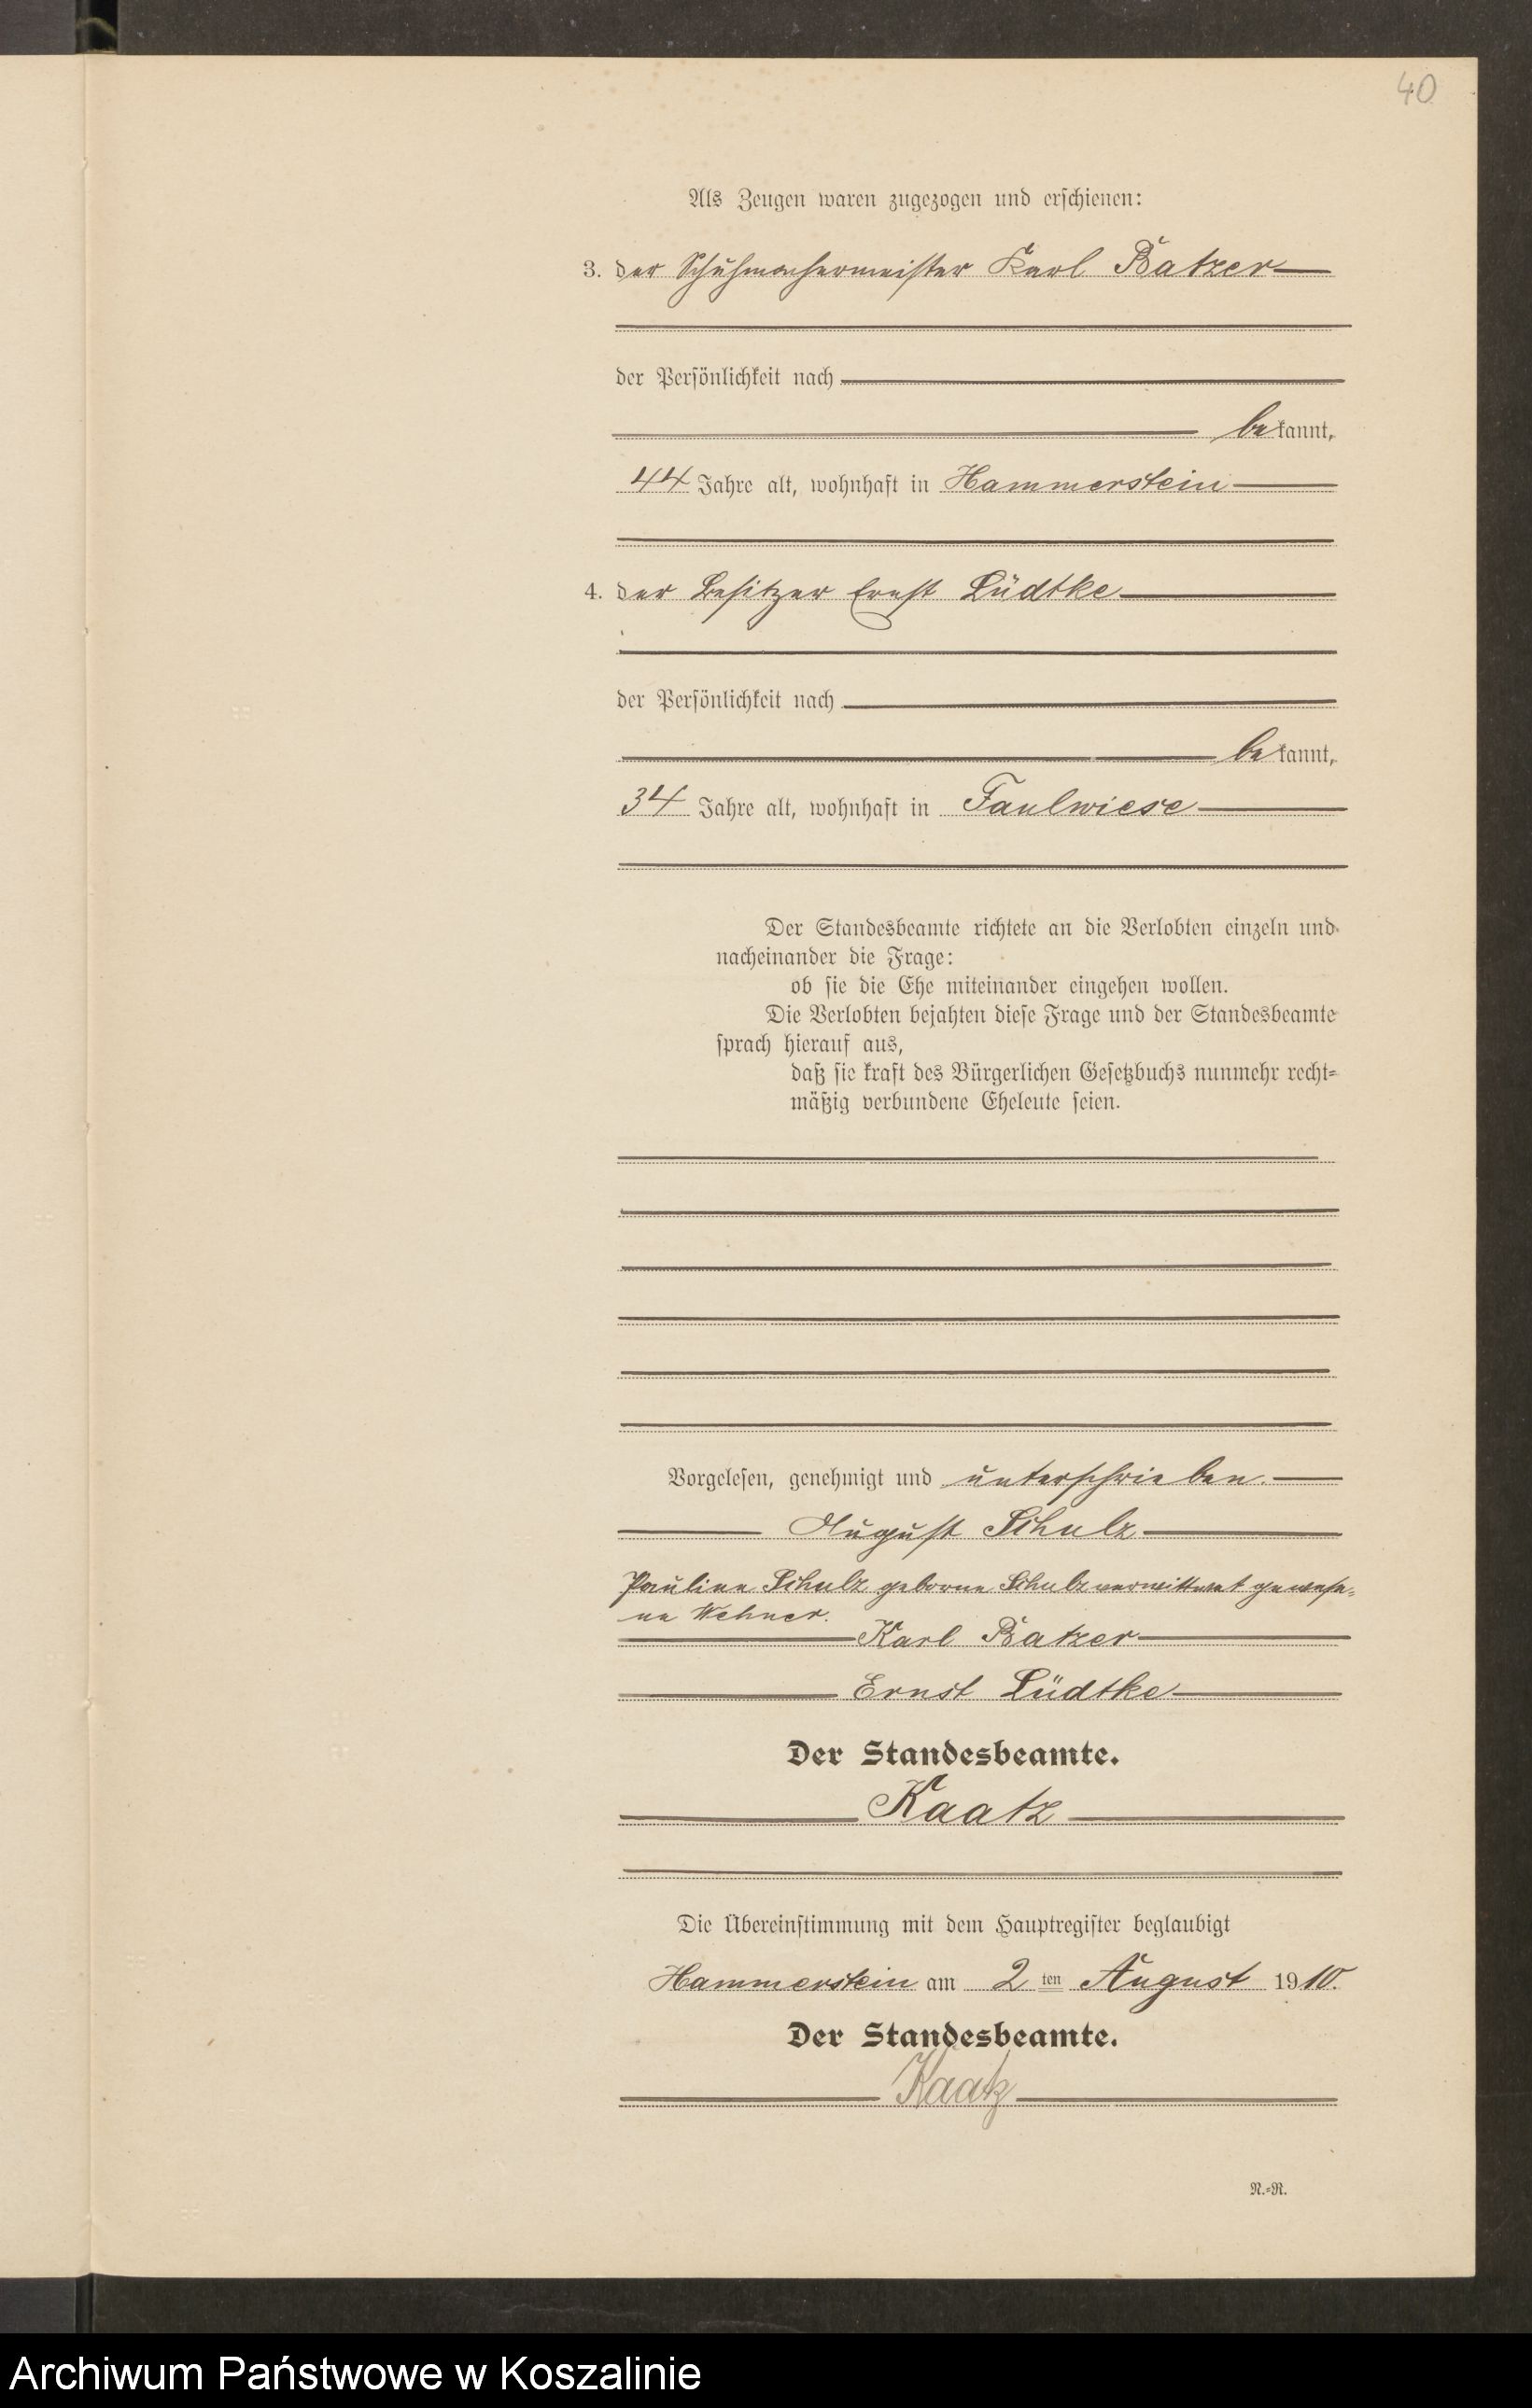 40
Als Zeugen waren zugezogen und erschienen:
3. der Schuhmachermeister Karl Batzer
der Persönlichkeit nach
bekannt,
44 Jahre alt, wohnhaft in Hammerstein
4. der Besitzer Ernst Lüdtke
der Persönlichkeit nach
bekannt,
34 Jahre alt, wohnhaft in Faulwiese
Der Standesbeamte richtete an die Verlobten einzeln und
nacheinander die Frage:
ob sie die Ehe miteinander eingehen wollen.
Die Verlobten bejahten diese Frage und der Standesbeamte
sprach hierauf aus,
daß sie kraft des Bürgerlichen Gesetzbuchs nunmehr recht-
mäßig verbundene Eheleute seien.
Vorgelesen, genehmigt und unterschrieben.
August Schulz
Pauline Schulz geborne Schulz verwittwet gewese-
ne Wehner.
Karl Batzer
Ernst Lüdtke
Der Standesbeamte.
Kaatz
Die Übereinstimmung mit dem Hauptregister beglaubigt
Hammerstein am 2 ten August 1910.
Der Standesbeamte.
Kaatz
N.-R.
Archiwum Państwowe w Koszalinie